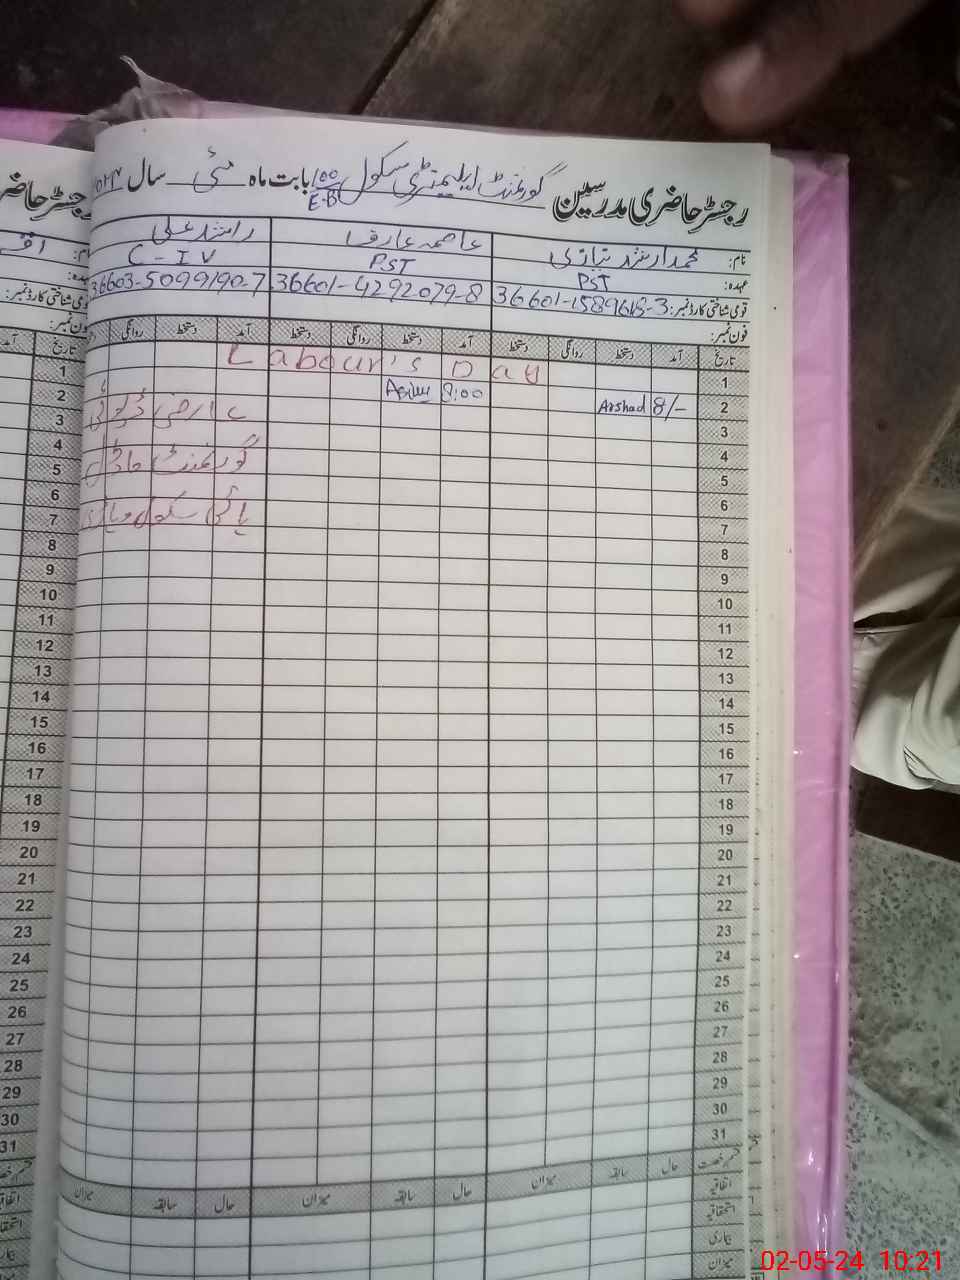 رجسٹر حاضری مدرسین گورنمنٹ ایلیمنٹری سکول 100/E-B بابت ماہ مئی سال
نام: محمد ارشد نیازی عاصمہ عارف راشد علی
عہدہ: PST PST C-IV
قومی شناختی کارڈ نمبر: 36601-1589618-3 36601-4292079-8 36603-5099190-7
فون نمبر:
تاریخ آمد دستخط روانگی دستخط آمد دستخط روانگی دستخط آمد دستخط روانگی
1 Labour's Day
2 8/- Arshad 8:00 عارضی ڈیوٹی
3
4 گورنمنٹ ماڈل
5
6 ہائی سکول
7
8
9
10
11
12
13
14
15
16
17
18
19
20
21
22
23
24
25
26
27
28
29
30
31
قسم رخصت حال سابقہ میزان حال سابقہ میزان حال سابقہ میزان
اتفاقیہ
استحقاقیہ
بیماری
میزان
رجسٹر حاضری
نام:
عہدہ:
قومی شناختی کارڈ نمبر:
فون نمبر:
تاریخ آمد
1
2
3
4
5
6
7
8
9
10
11
12
13
14
15
16
17
18
19
20
21
22
23
24
25
26
27
28
29
30
31
02-05-24 10:21